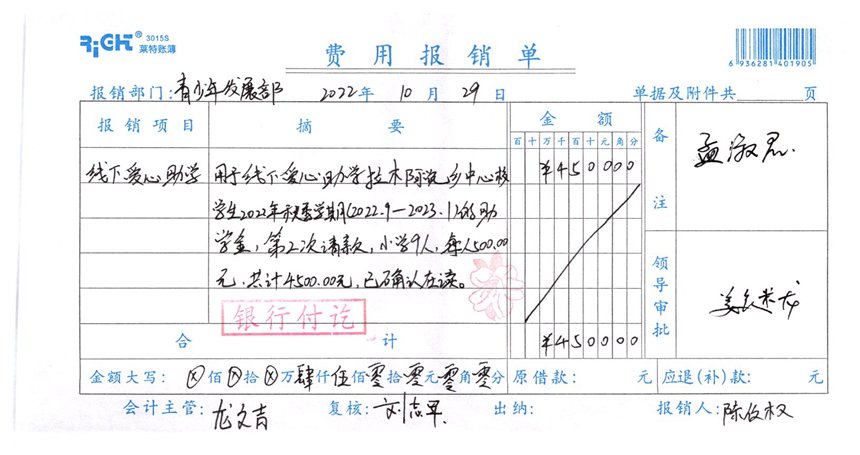 RiGHT® 3015S
莱特账簿
费用报销单
6 936281 401905
报销部门: 青少年发展部 2022年 10月 29日 单据及附件共 页
报销项目 摘要 金额 备注
百十万千百十元角分
线下爱心助学 用于线下爱心助学拉木阿觉乡中心校 ¥450000
学生2022年秋季学期(2022.9—2023.1)的助
学金,第2次请款,小学9人,每人500.00
元,共计4500.00元,已确认在读。
银行付讫
领导审批
合计 ¥450000
金额大写: ⊗佰⊗拾⊗万肆仟伍佰零拾零元零角零分 原借款: 元 应退(补)款: 元
会计主管: 龙文吉 复核: 刘志早 出纳: 报销人: 陈俊权